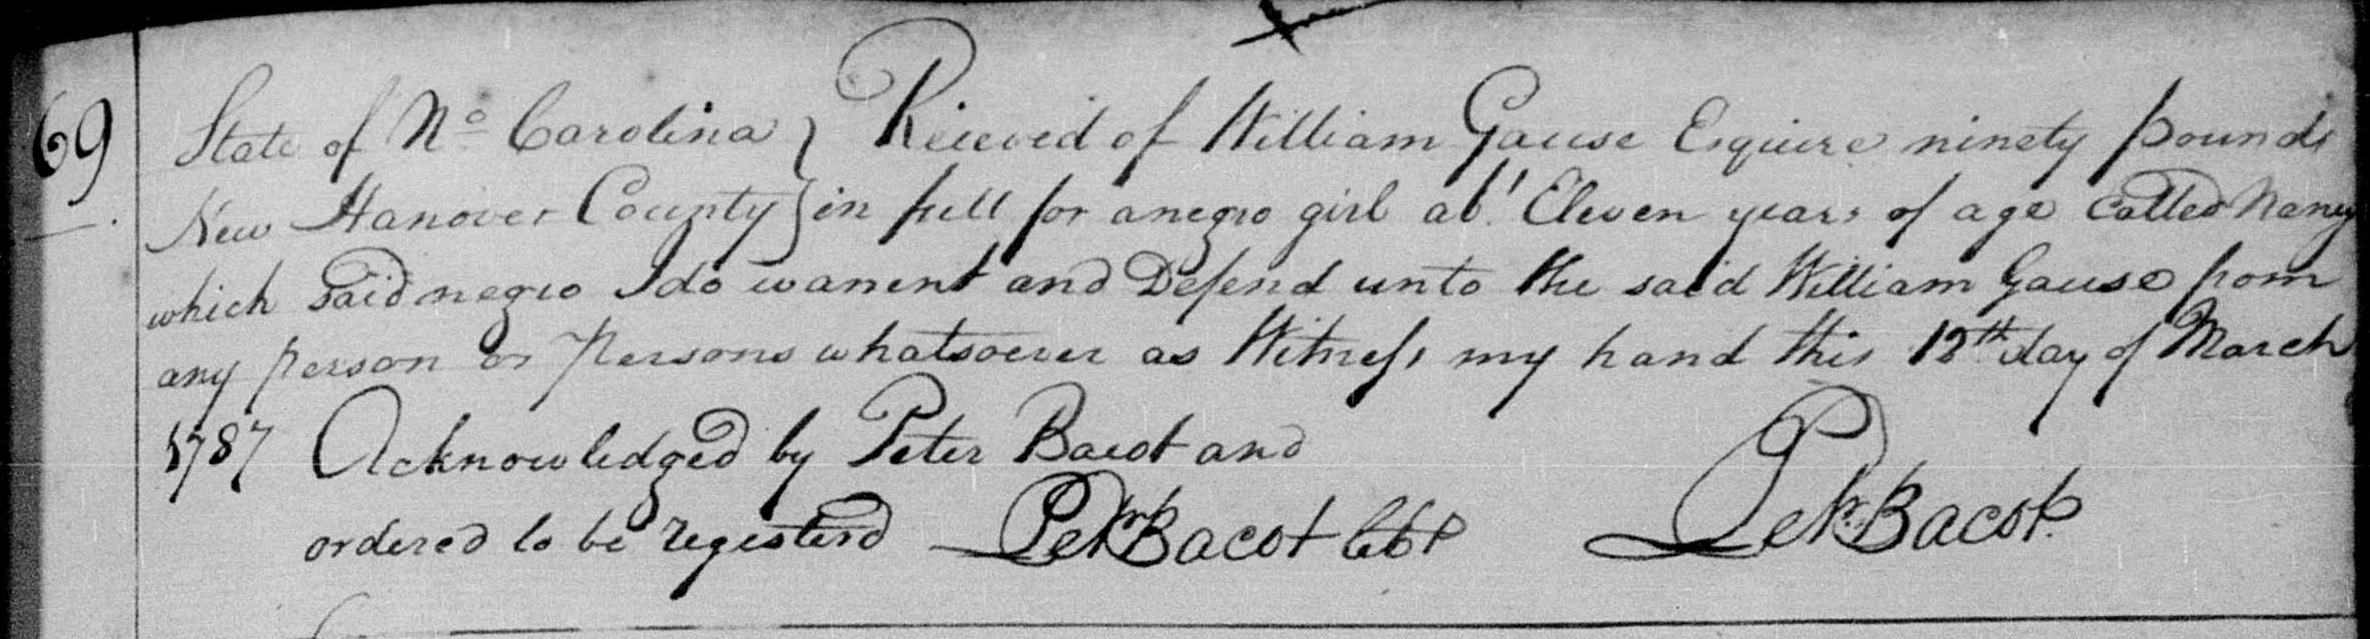 69
State of No Carolina } Recieved of William Gause Esquire ninety pounds
New Hanover County } in full for a negro girl abt Eleven years of age Called Nancy
which Said negro I do warrent and Defend unto the said William Gause from
any person or Persons whatsoever as Witness my hand this 12th day of March
1787 Acknowledged by Peter Bacot and
ordered to be registerd Petr Bacot Petr Bacot